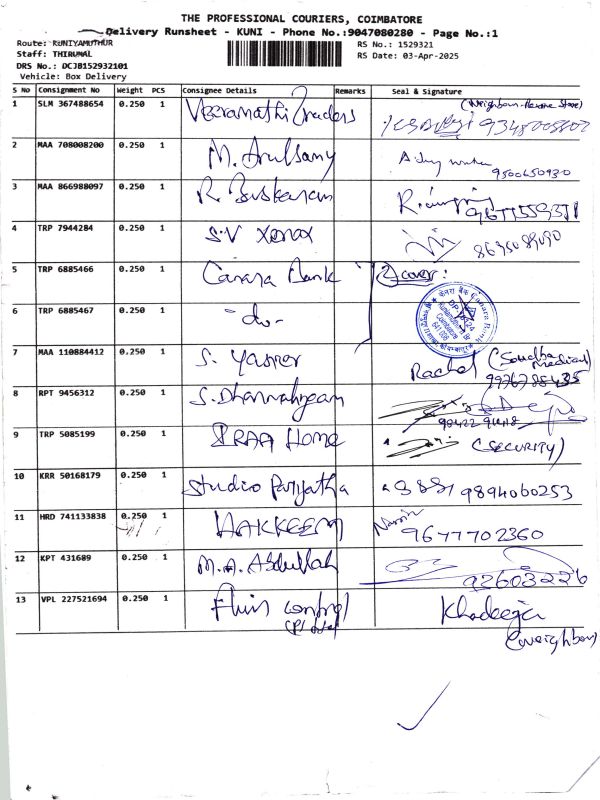 THE PROFESSIONAL COURIERS, COIMBATORE
Delivery Runsheet - KUNI - Phone No.:9047080280 - Page No.:1
Route: KUNIYAMUTHUR
Staff: THIRUMAL
DRS No.: DCJB152932101
Vehicle: Box Delivery
RS No.: 1529321
RS Date: 03-Apr-2025
S No Consignment No Weight PCS Consignee Details Remarks Seal & Signature
1 SLM 367488654 0.250 1 Veeramathi Traders (Neighbour - Store)
2 MAA 708008200 0.250 1 M. Arulsamy 9500650930
3 MAA 866988097 0.250 1 R. Baskaram 9677559371
4 TRP 7944284 0.250 1 S.V Xerox 8675089090
5 TRP 6885466 0.250 1 Canara Bank 2 cover
6 TRP 6885467 0.250 1 - do -
7 MAA 110884412 0.250 1 S. Yasser Rachel (Soudha Medical)
9976788435
8 RPT 9456312 0.250 1 S. Dharmalingam
9 TRP 5085199 0.250 1 IRAA Home (SECURITY)
10 KRR 50168179 0.250 1 Studio Parijatha 9894060253
11 HRD 741133838 0.250 1 HAKKEEM 9677702360
12 KPT 431689 0.250 1 M.A. Abdullah 92603226
13 VPL 227521694 0.250 1 Fluid control Khadeeja
(Neighbour)